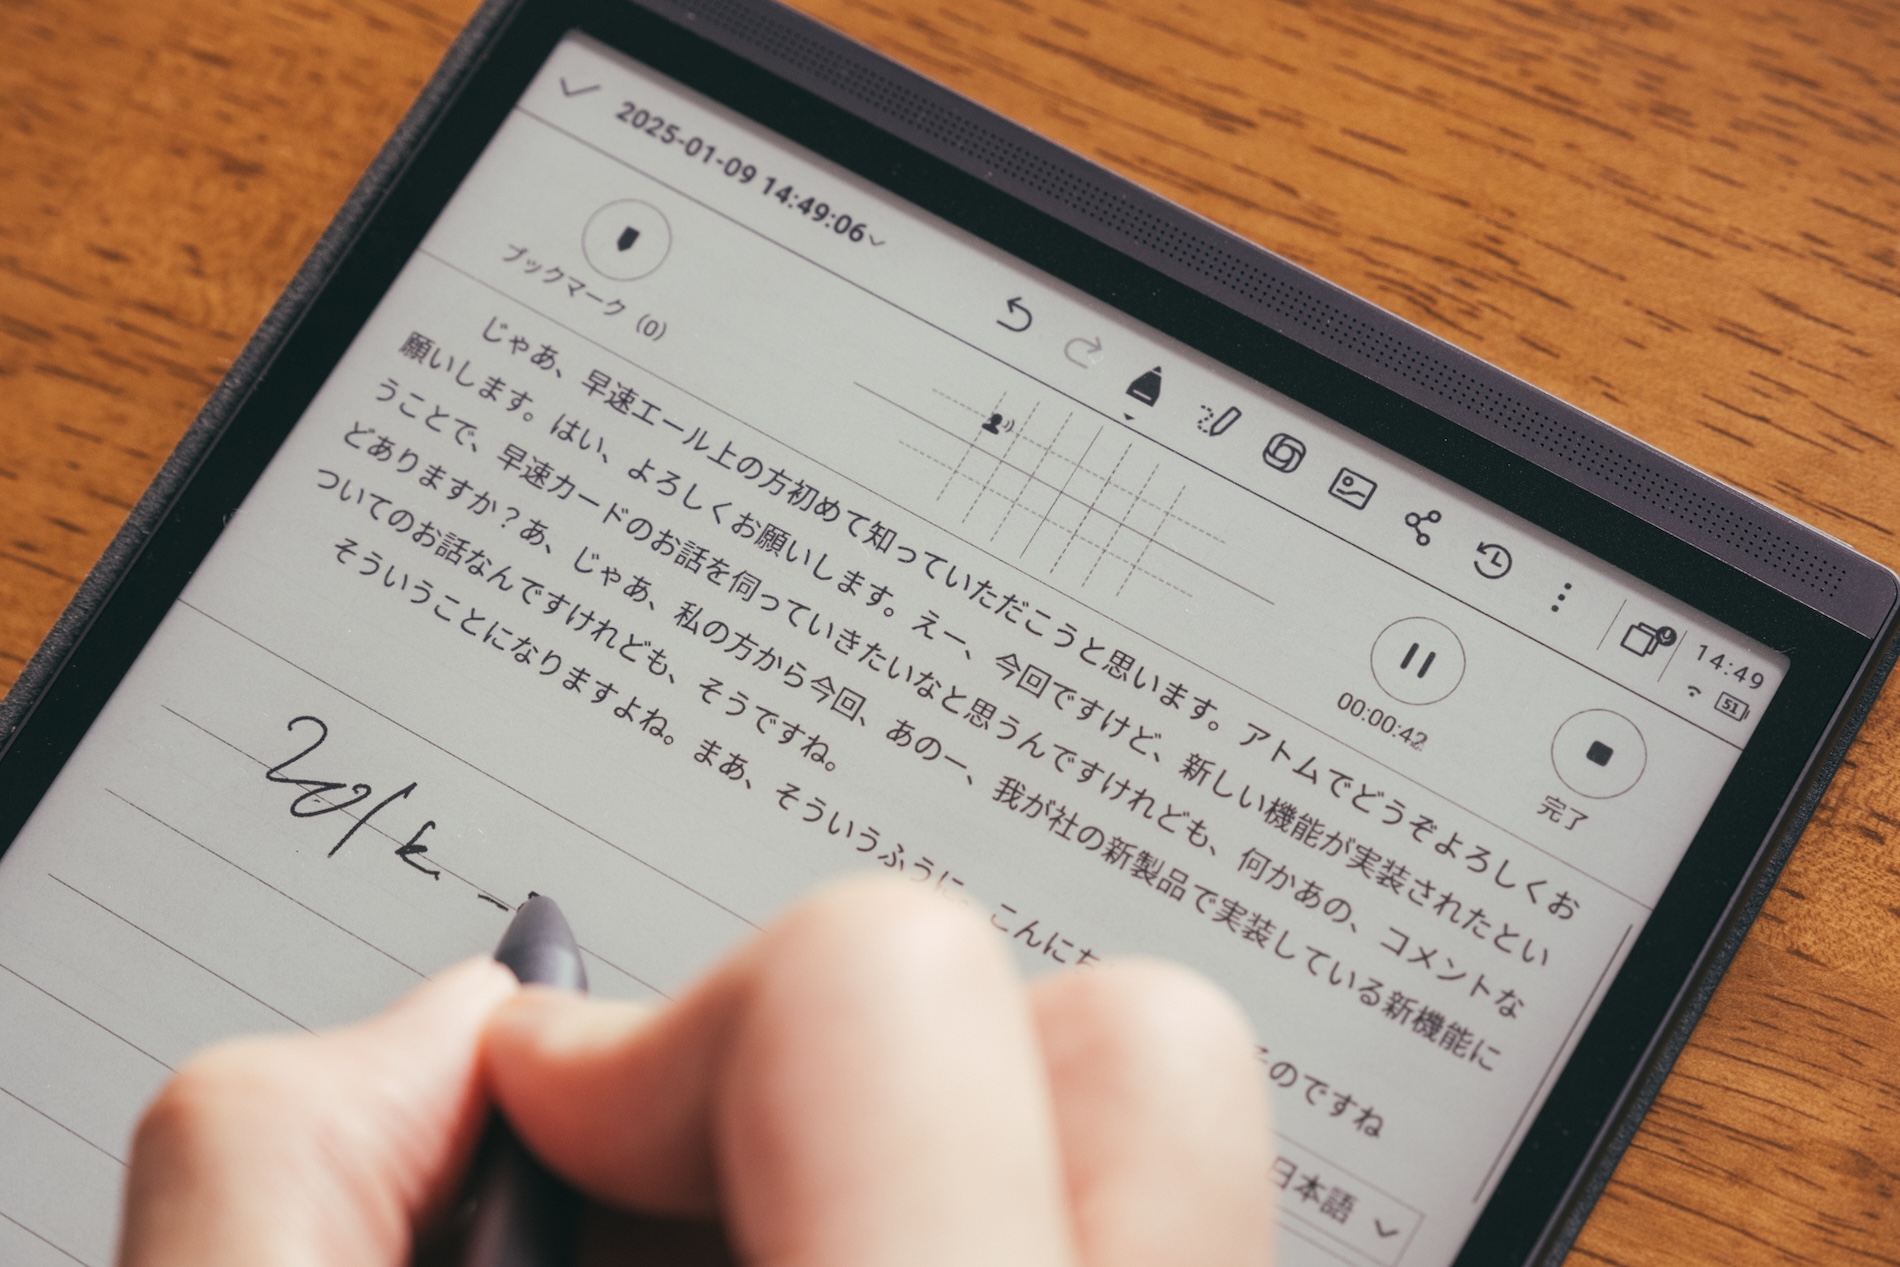 2025-01-09 14:49:06
14:49
51
ブックマーク (0)
00:00:42
完了
じゃあ、早速エール上の方初めて知っていただこうと思います。アトムでどうぞよろしくお
願いします。はい、よろしくお願いします。えー、今回ですけど、新しい機能が実装されたとい
うことで、早速カードのお話を伺っていきたいなと思うんですけれども、何かあの、コメントな
どありますか？あ、じゃあ、私の方から今回、あのー、我が社の新製品で実装している新機能に
ついてのお話なんですけれども、そうですね。
そういうことになりますよね。まあ、そういうふうに。こんにち
のですね
日本語